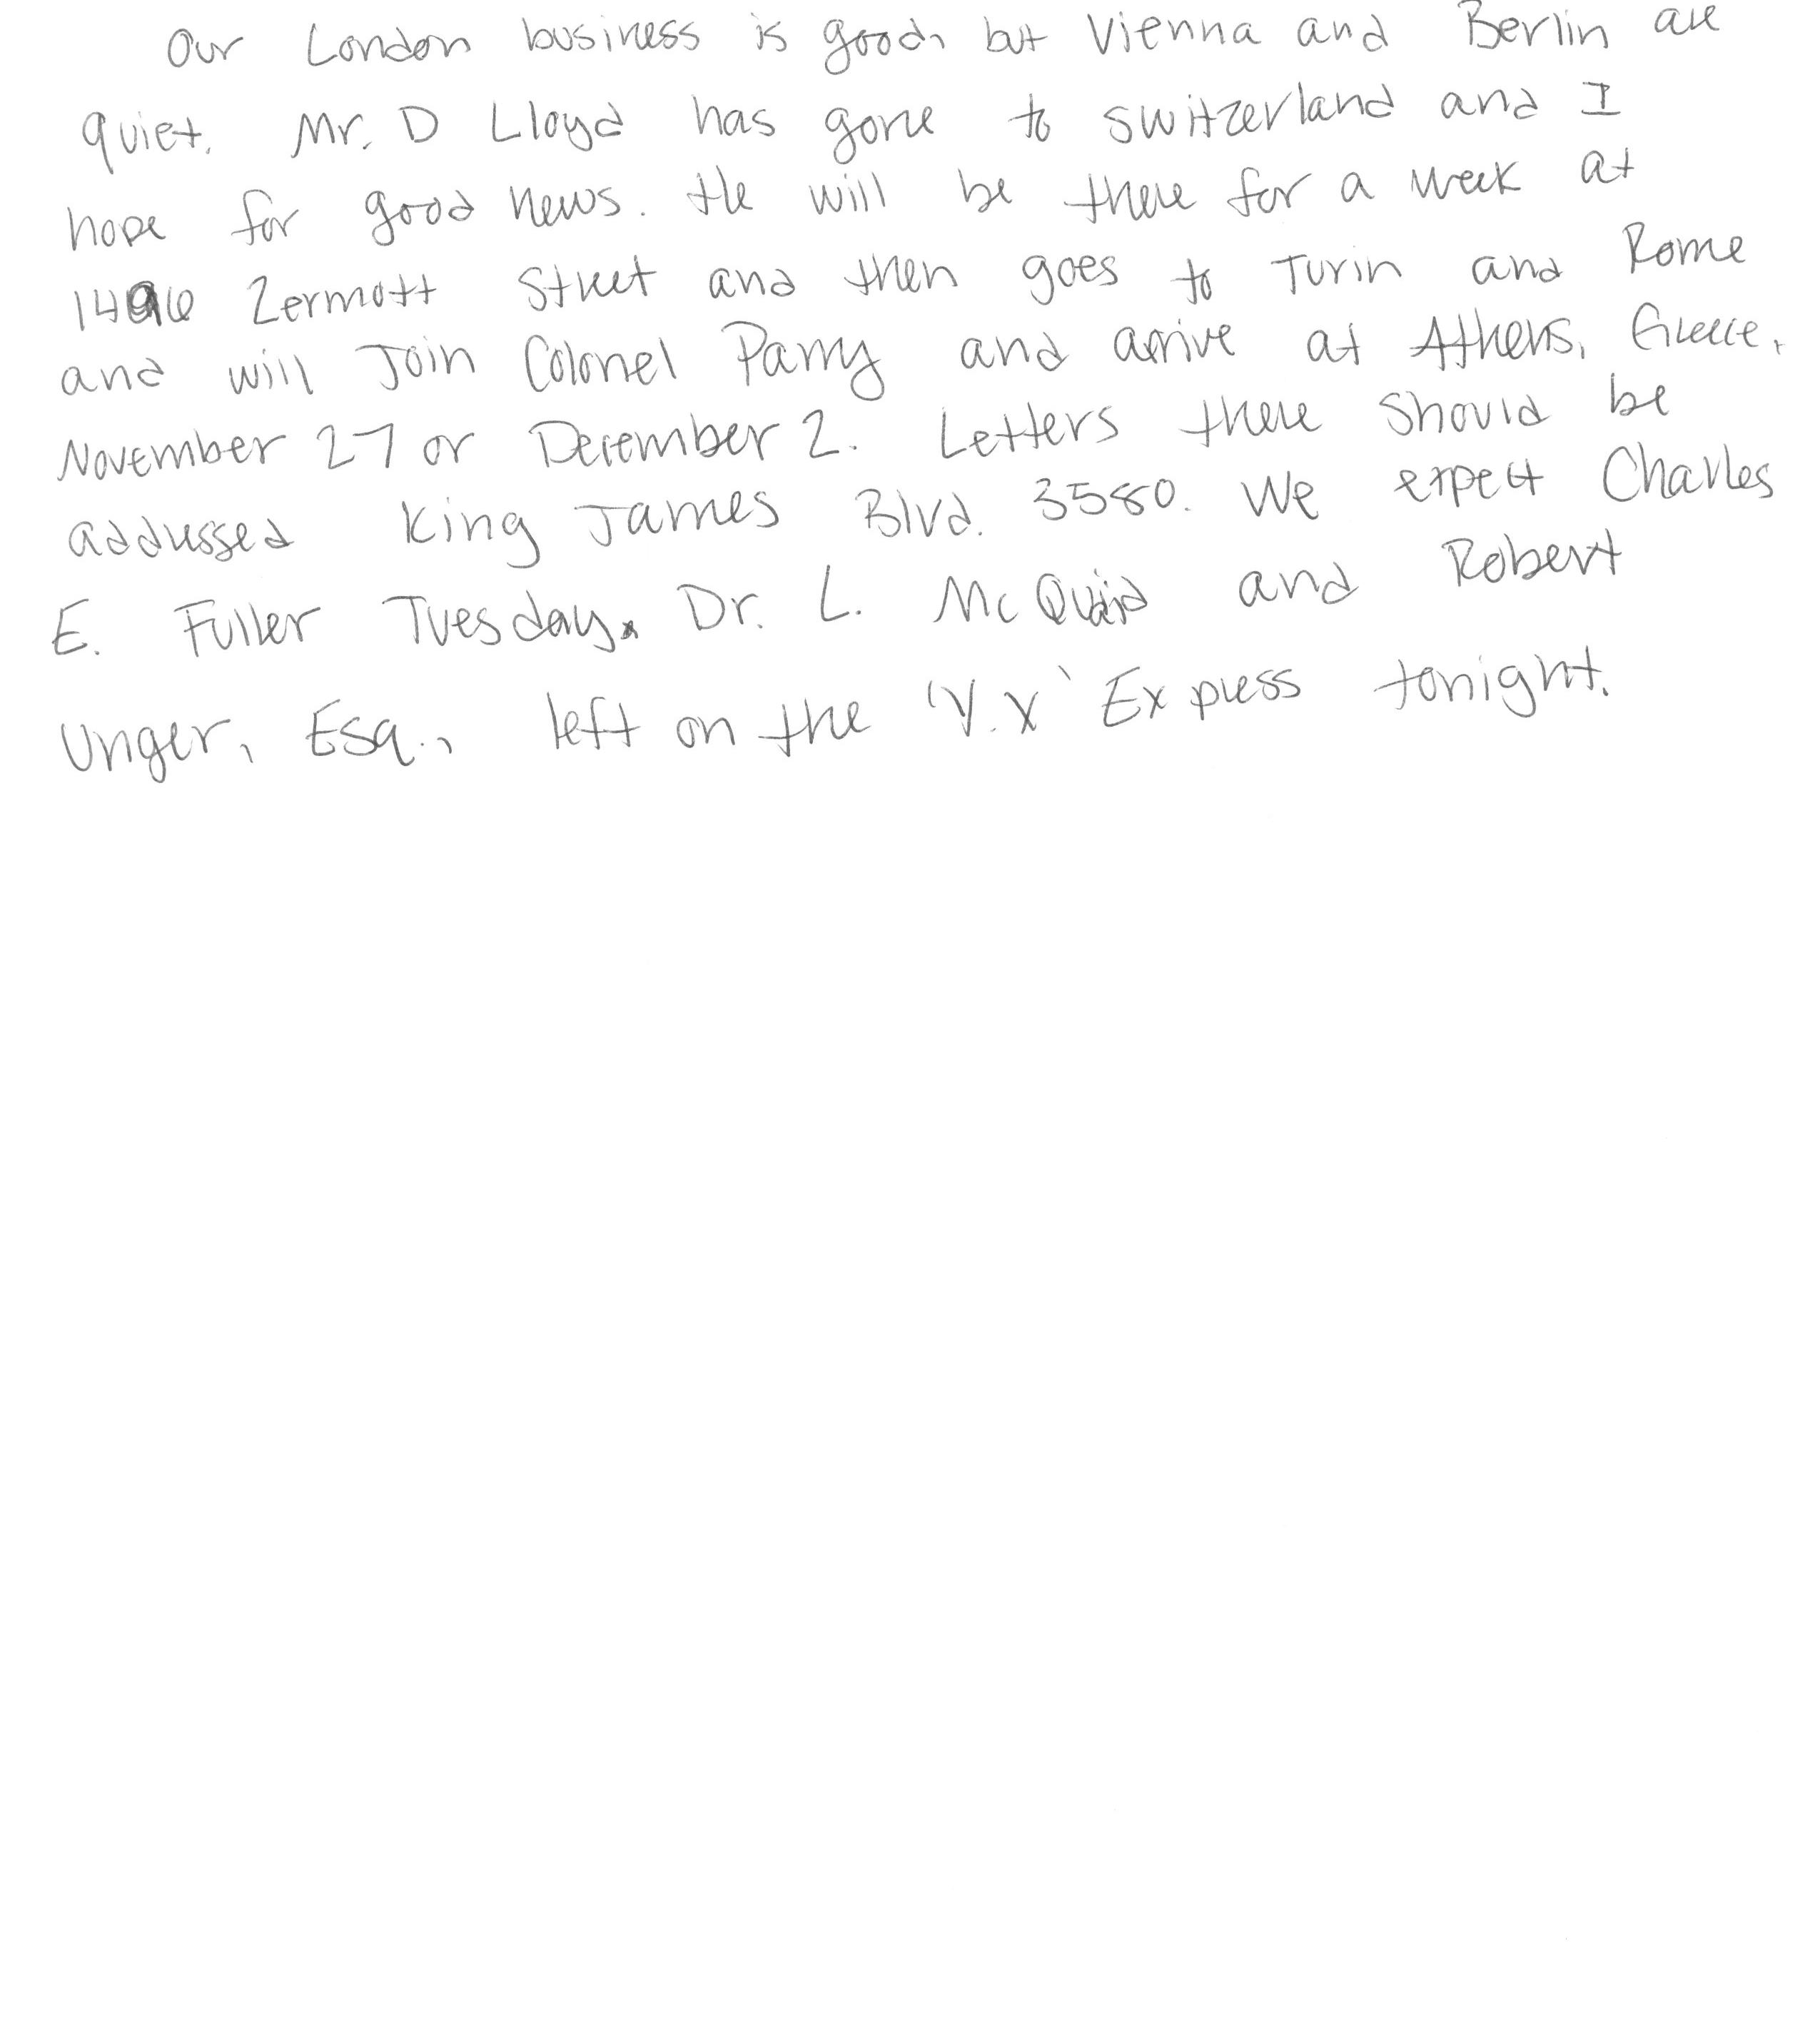 Our London business is good, but Vienna and Berlin are
quiet. Mr. D Lloyd has gone to Switzerland and I
hope for good news. He will be there for a week at
1496 Zermott Street and then goes to Turin and Rome
and will Join Colonel Parry and arrive at Athens, Greece,
November 27 or December 2. Letters there should be
addressed King James Blvd. 3580. We expect Charles
E. Fuller Tuesday. Dr. L. McQuaid and Robert
Unger, Esq., left on the 'V.X' Express tonight.